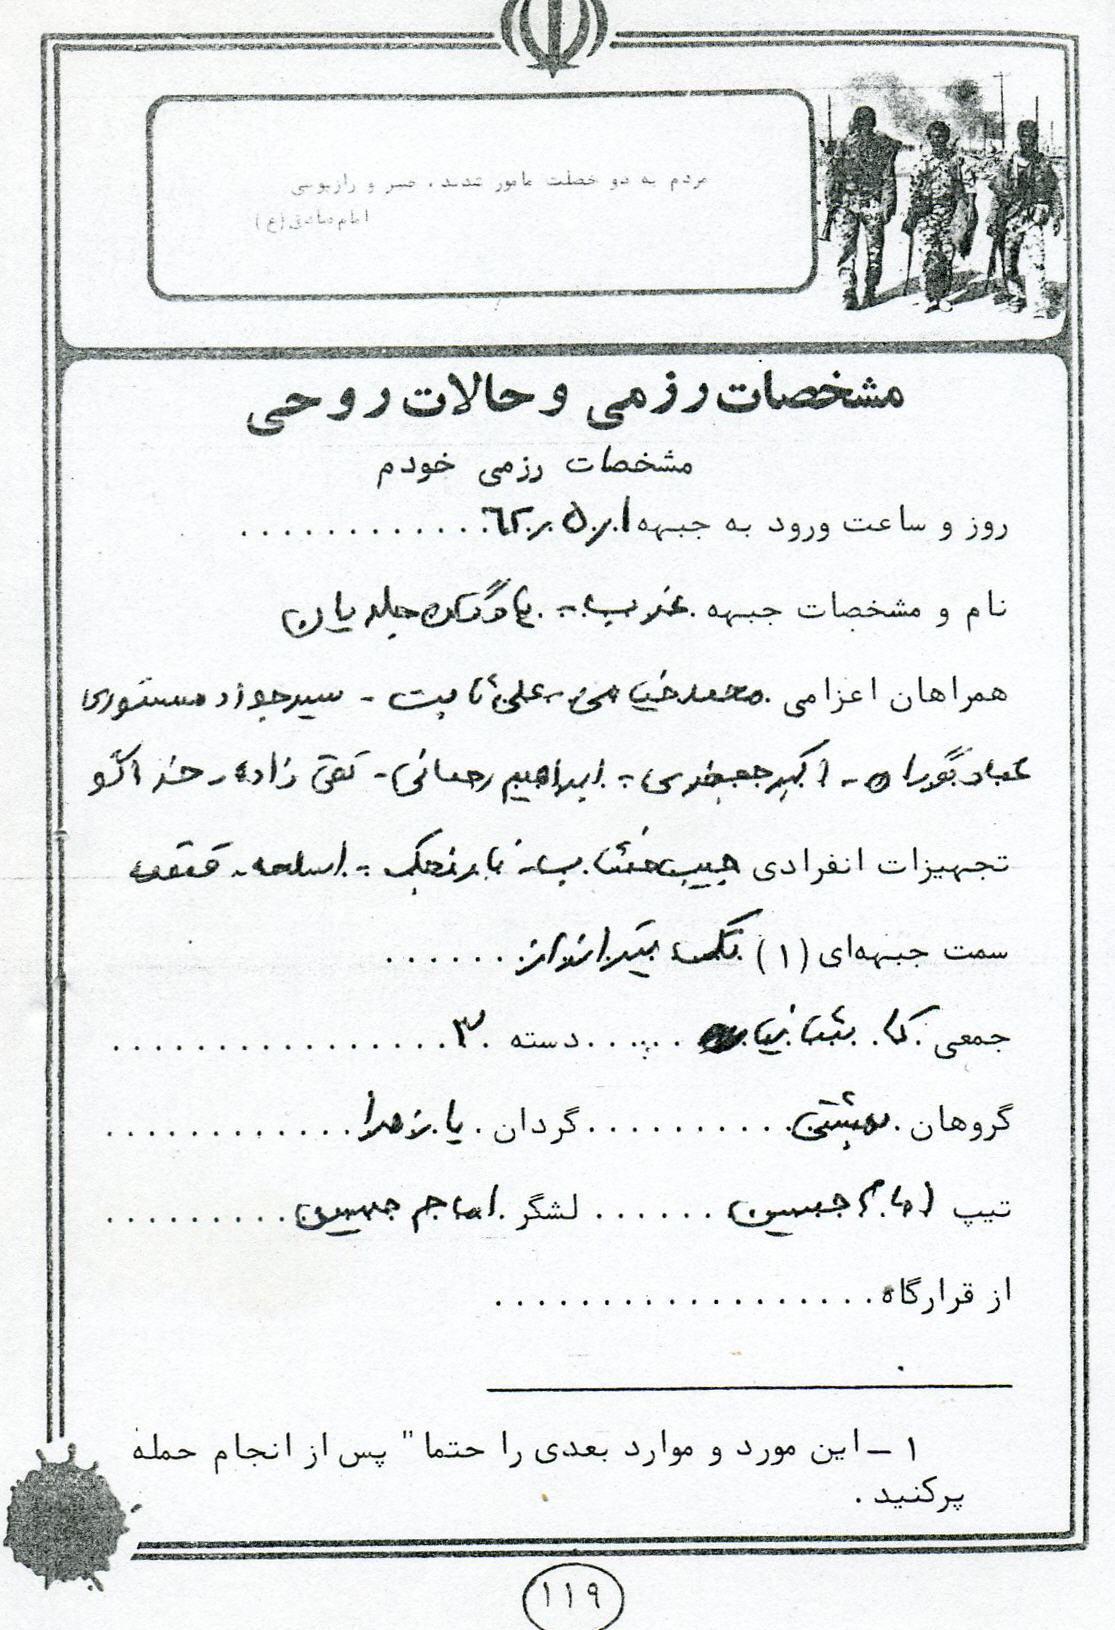 مردم به دو خصلت مامور شدند، صبر و رازپوشی
امام صادق (ع)
مشخصات رزمی و حالات روحی
مشخصات رزمی خودم
روز و ساعت ورود به جبهه ۶۲/۵/۱
نام و مشخصات جبهه غرب - پادگان جلدیان
همراهان اعزامی محمد خیامی - علی ثابت - سید جواد مستوری
اکبر جعفری - ابراهیم رحمانی - تقی زاده -
تجهیزات انفرادی جیب خشاب - نارنجک - اسلحه - قمقمه
سمت جبهه‌ای (۱) تک تیرانداز
جمعی دسته ۳
گروهان بهشتی گردان یا زهرا
تیپ امام حسین لشگر امام حسین
از قرارگاه
۱ - این مورد و موارد بعدی را حتما" پس از انجام حمله
پرکنید.
۱۱۹